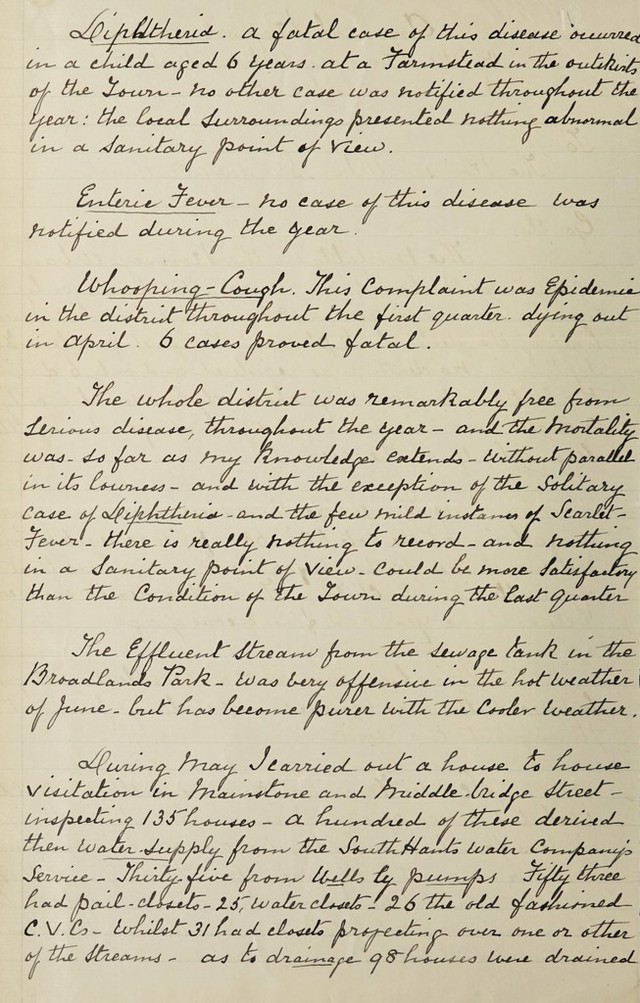 Diphtheria. a fatal case of this disease occurred
in a child aged 6 years. at a Farmstead in the outskirts
of the Town - no other case was notified throughout the
year: the local surroundings presented nothing abnormal
in a sanitary point of view.
Enteric Fever - no case of this disease was
notified during the year.
Whooping-Cough. This complaint was Epidemic
in the district throughout the first quarter. dying out
in April. 6 cases proved fatal.
The whole district was remarkably free from
serious disease, throughout the year - and the Mortality
was - so far as my knowledge extends - without parallel
in its lowness - and with the exception of the Solitary
case of Diphtheria - and the few mild instances of Scarlet-
Fever - there is really nothing to record - and nothing
in a Sanitary point of view - could be more satisfactory
than the Condition of the Town during the last quarter
The Effluent stream from the sewage tank in the
Broadlands Park - was very offensive in the hot weather
of June - but has become purer with the cooler weather.
During May I carried out a house to house
visitation in Mainstone and Middle-bridge Street -
inspecting 135 houses - a hundred of these derived
then water-supply from the South Hants Water Company's
Service - Thirty-five from Wells by pumps Fifty three
had pail-closets - 25, water closets - 26 the old fashioned
C.V.Cs - whilst 31 had closets projecting over one or other
of the streams - as to drainage 98 houses were drained